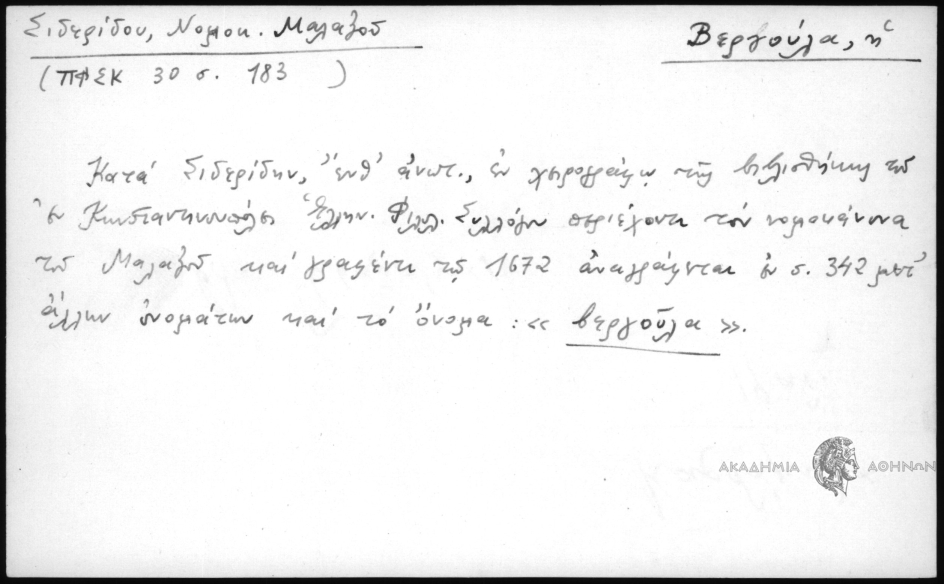 Σιδερίδου, Νομοκ. Μαλαξοῦ
Βεργούλα, ἡ
(ΠΦΣΚ 30 σ. 183 )
Κατά Σιδερίδην, ἔνθ' ἀνωτ., ἐν χειρογράφῳ τῆς βιβλιοθήκης τοῦ
ἐν Κωνσταντινουπόλει Ἑλλην. Φιλολ. Συλλόγου περιέχοντι τόν νομοκάνονα
τοῦ Μαλαξοῦ καί γραφέντι τῷ 1672 ἀναγράφεται ἐν σ. 342 μετ'
ἄλλων ὀνομάτων καί τό ὄνομα : « βεργοῦλα ».
ΑΚΑΔΗΜΙΑ ΑΘΗΝΩΝ